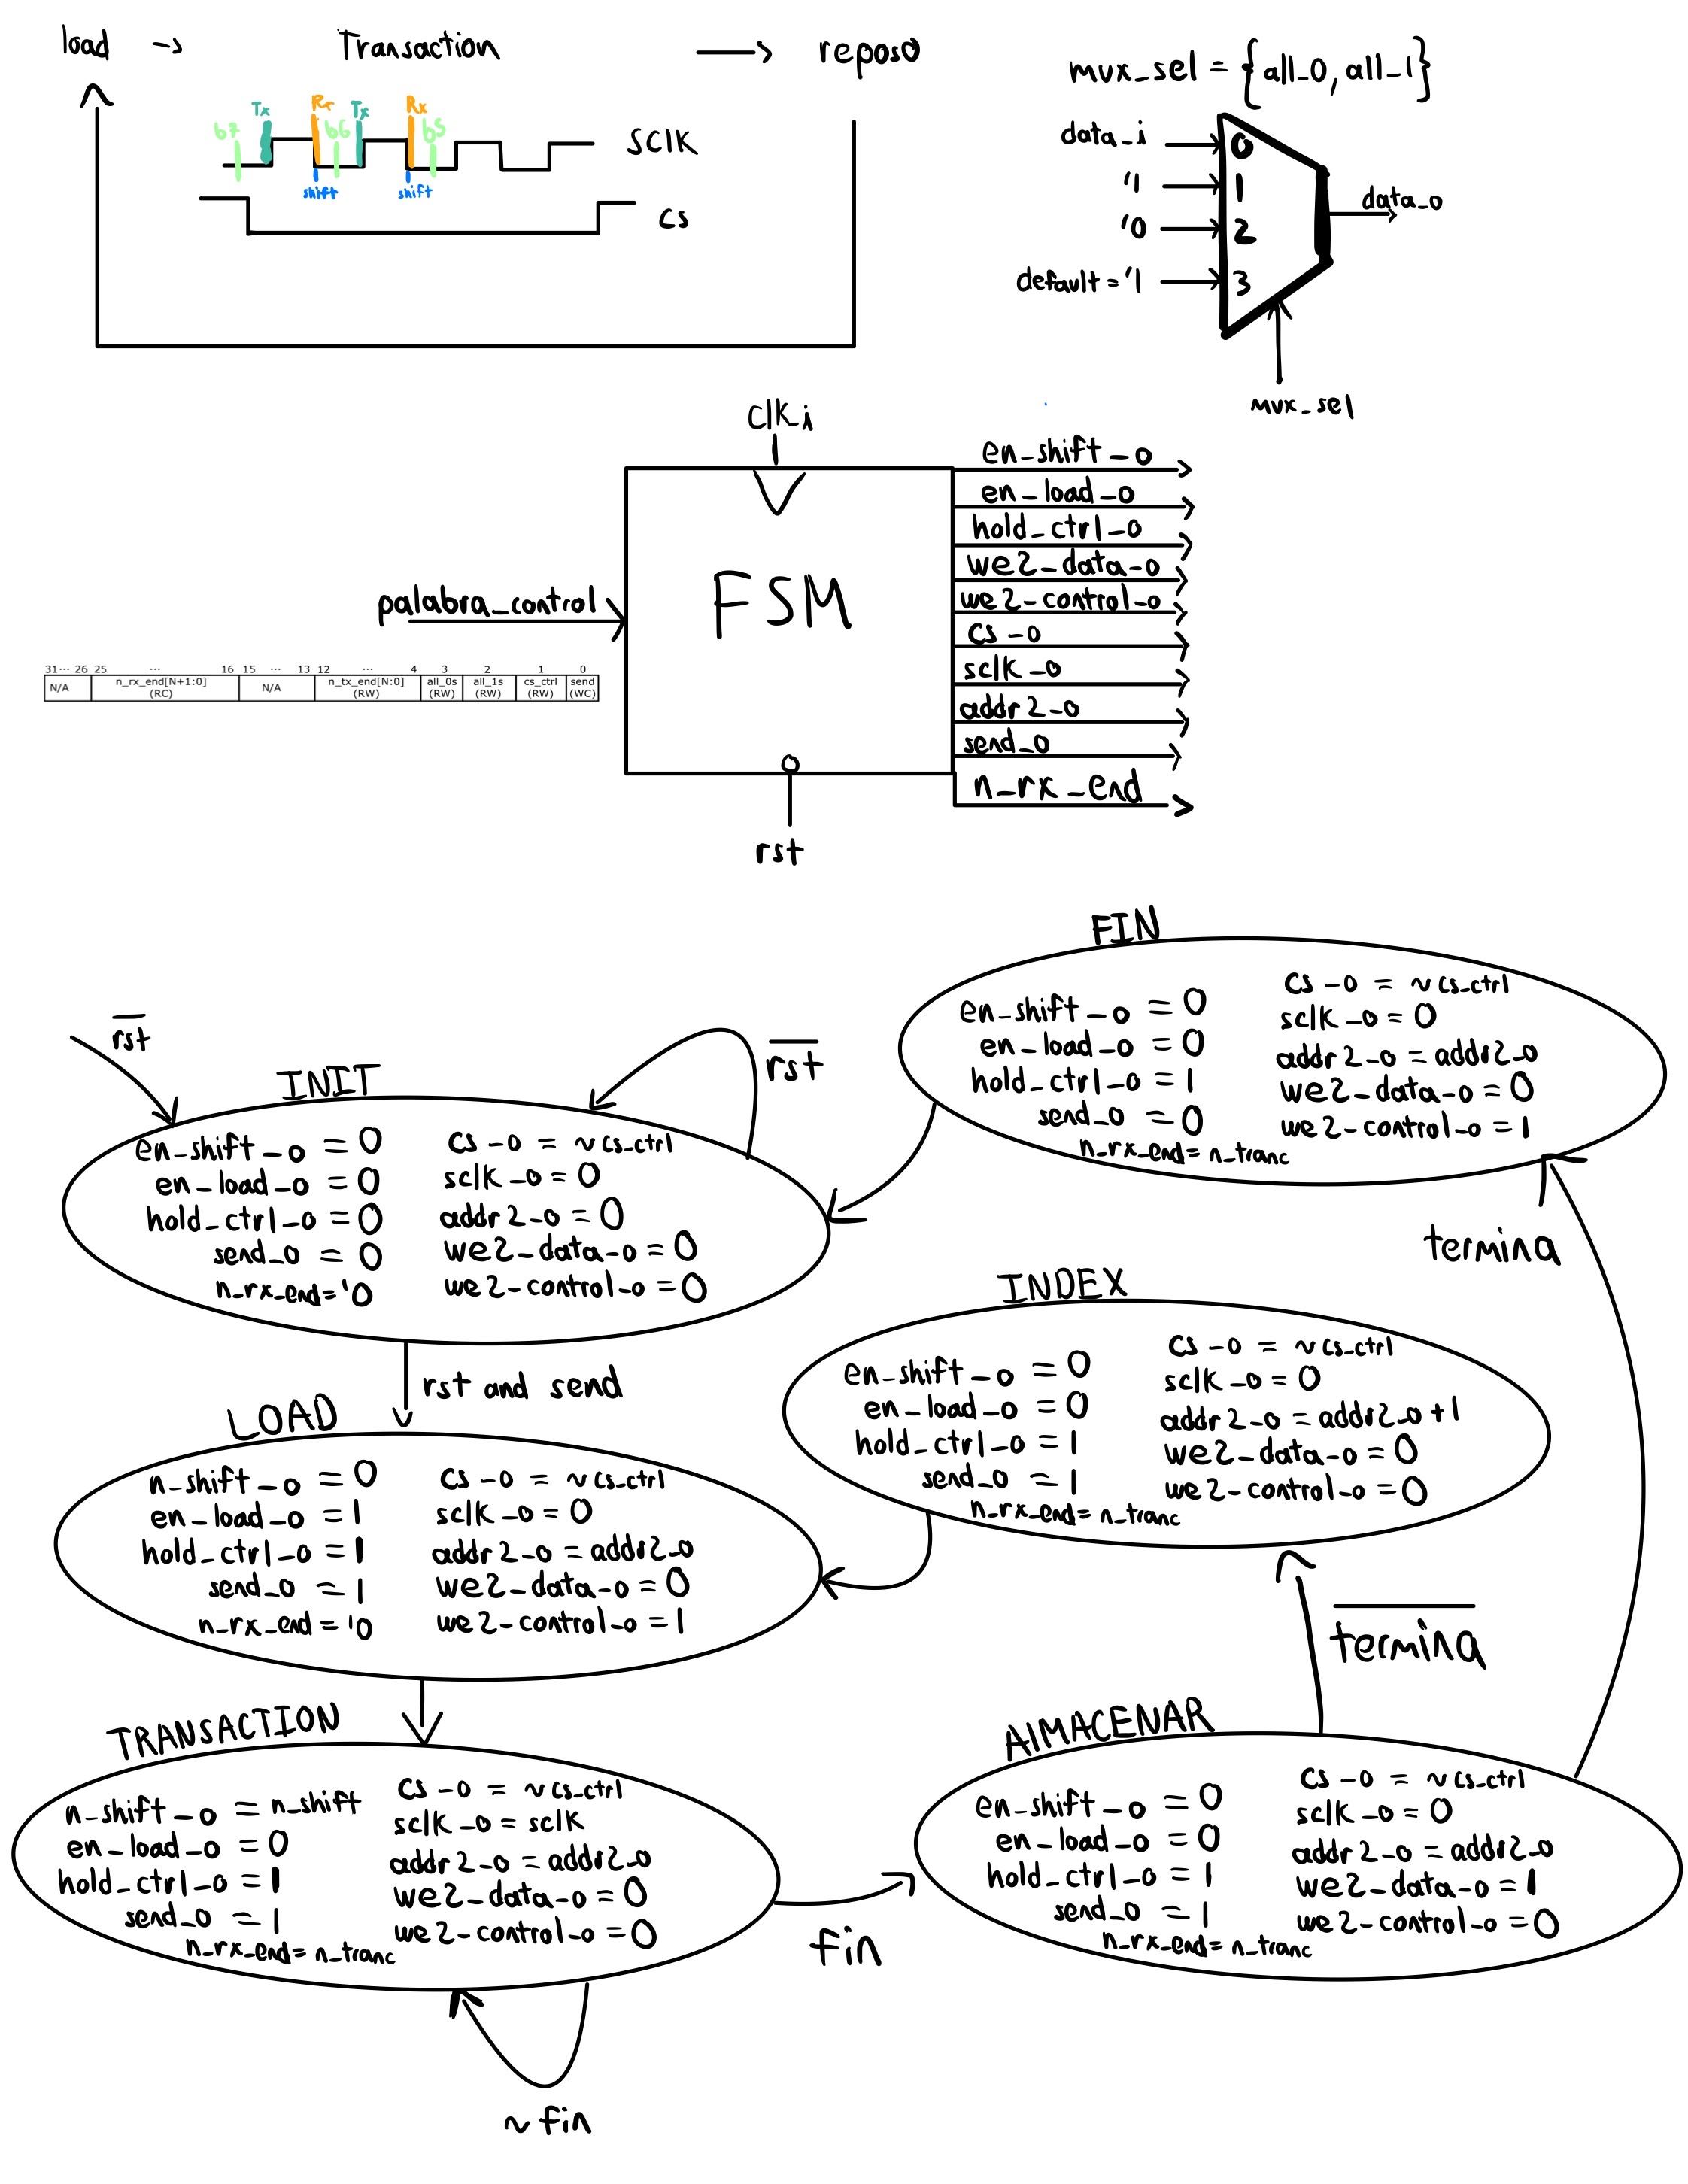 load -> Transaction → reposo
Tx Rx Tx Rx
b7 b6 b5
SCLK
shift shift
cs
mux_sel = {all_0, all_1}
data_i 0
'1 1
'0 2
default = '1 3
data_o
mux_sel
clk i
FSM
palabra_control
rst
en_shift_o
en_load_o
hold_ctrl_o
we2_data_o
we2_control_o
cs_o
sclk_o
addr2_o
send_o
n_rx_end
31... 26 25 ... 16 15 ... 13 12 ... 4 3 2 1 0
N/A n_rx_end[N+1:0] (RC) N/A n_tx_end[N:0] (RW) all_0s (RW) all_1s (RW) cs_ctrl (RW) send (WC)
FIN
en_shift_o = 0
en_load_o = 0
hold_ctrl_o = 1
send_o = 0
n_rx_end = n_tranc
cs_o = ~cs_ctrl
sclk_o = 0
addr2_o = addr2_o
we2_data_o = 0
we2_control_o = 1
rst
rst
INIT
en_shift_o = 0
en_load_o = 0
hold_ctrl_o = 0
send_o = 0
n_rx_end = '0
cs_o = ~cs_ctrl
sclk_o = 0
addr2_o = 0
we2_data_o = 0
we2_control_o = 0
termina
INDEX
en_shift_o = 0
en_load_o = 0
hold_ctrl_o = 1
send_o = 1
n_rx_end = n_tranc
cs_o = ~cs_ctrl
sclk_o = 0
addr2_o = addr2_o + 1
we2_data_o = 0
we2_control_o = 0
rst and send
LOAD
n_shift_o = 0
en_load_o = 1
hold_ctrl_o = 1
send_o = 1
n_rx_end = '0
cs_o = ~cs_ctrl
sclk_o = 0
addr2_o = addr2_o
we2_data_o = 0
we2_control_o = 1
termina
TRANSACTION
n_shift_o = n_shift
en_load_o = 0
hold_ctrl_o = 1
send_o = 1
n_rx_end = n_tranc
cs_o = ~cs_ctrl
sclk_o = sclk
addr2_o = addr2_o
we2_data_o = 0
we2_control_o = 0
fin
~fin
AlMACENAR
en_shift_o = 0
en_load_o = 0
hold_ctrl_o = 1
send_o = 1
n_rx_end = n_tranc
cs_o = ~cs_ctrl
sclk_o = 0
addr2_o = addr2_o
we2_data_o = 1
we2_control_o = 0